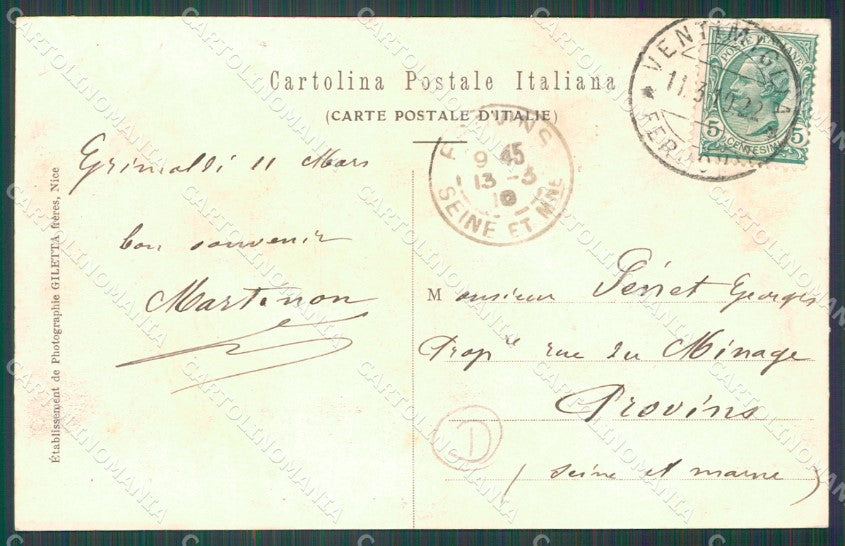 Cartolina Postale Italiana
(CARTE POSTALE D'ITALIE)
Grimaldi 11 Mars
bon souvenir
Martinon
Monsieur Périet Georges
Propre rue du Minage
Provins
(Seine et marne)
Établissement de Photographie GILETTA frères, Nice
PROVINS
9 45
13 - 3
10
SEINE ET MNE
VENTIMIGLIA
11.3.10.22
POSTE ITALIANE
5 5
CENTESIMI
D
CARTOLINOMANIA